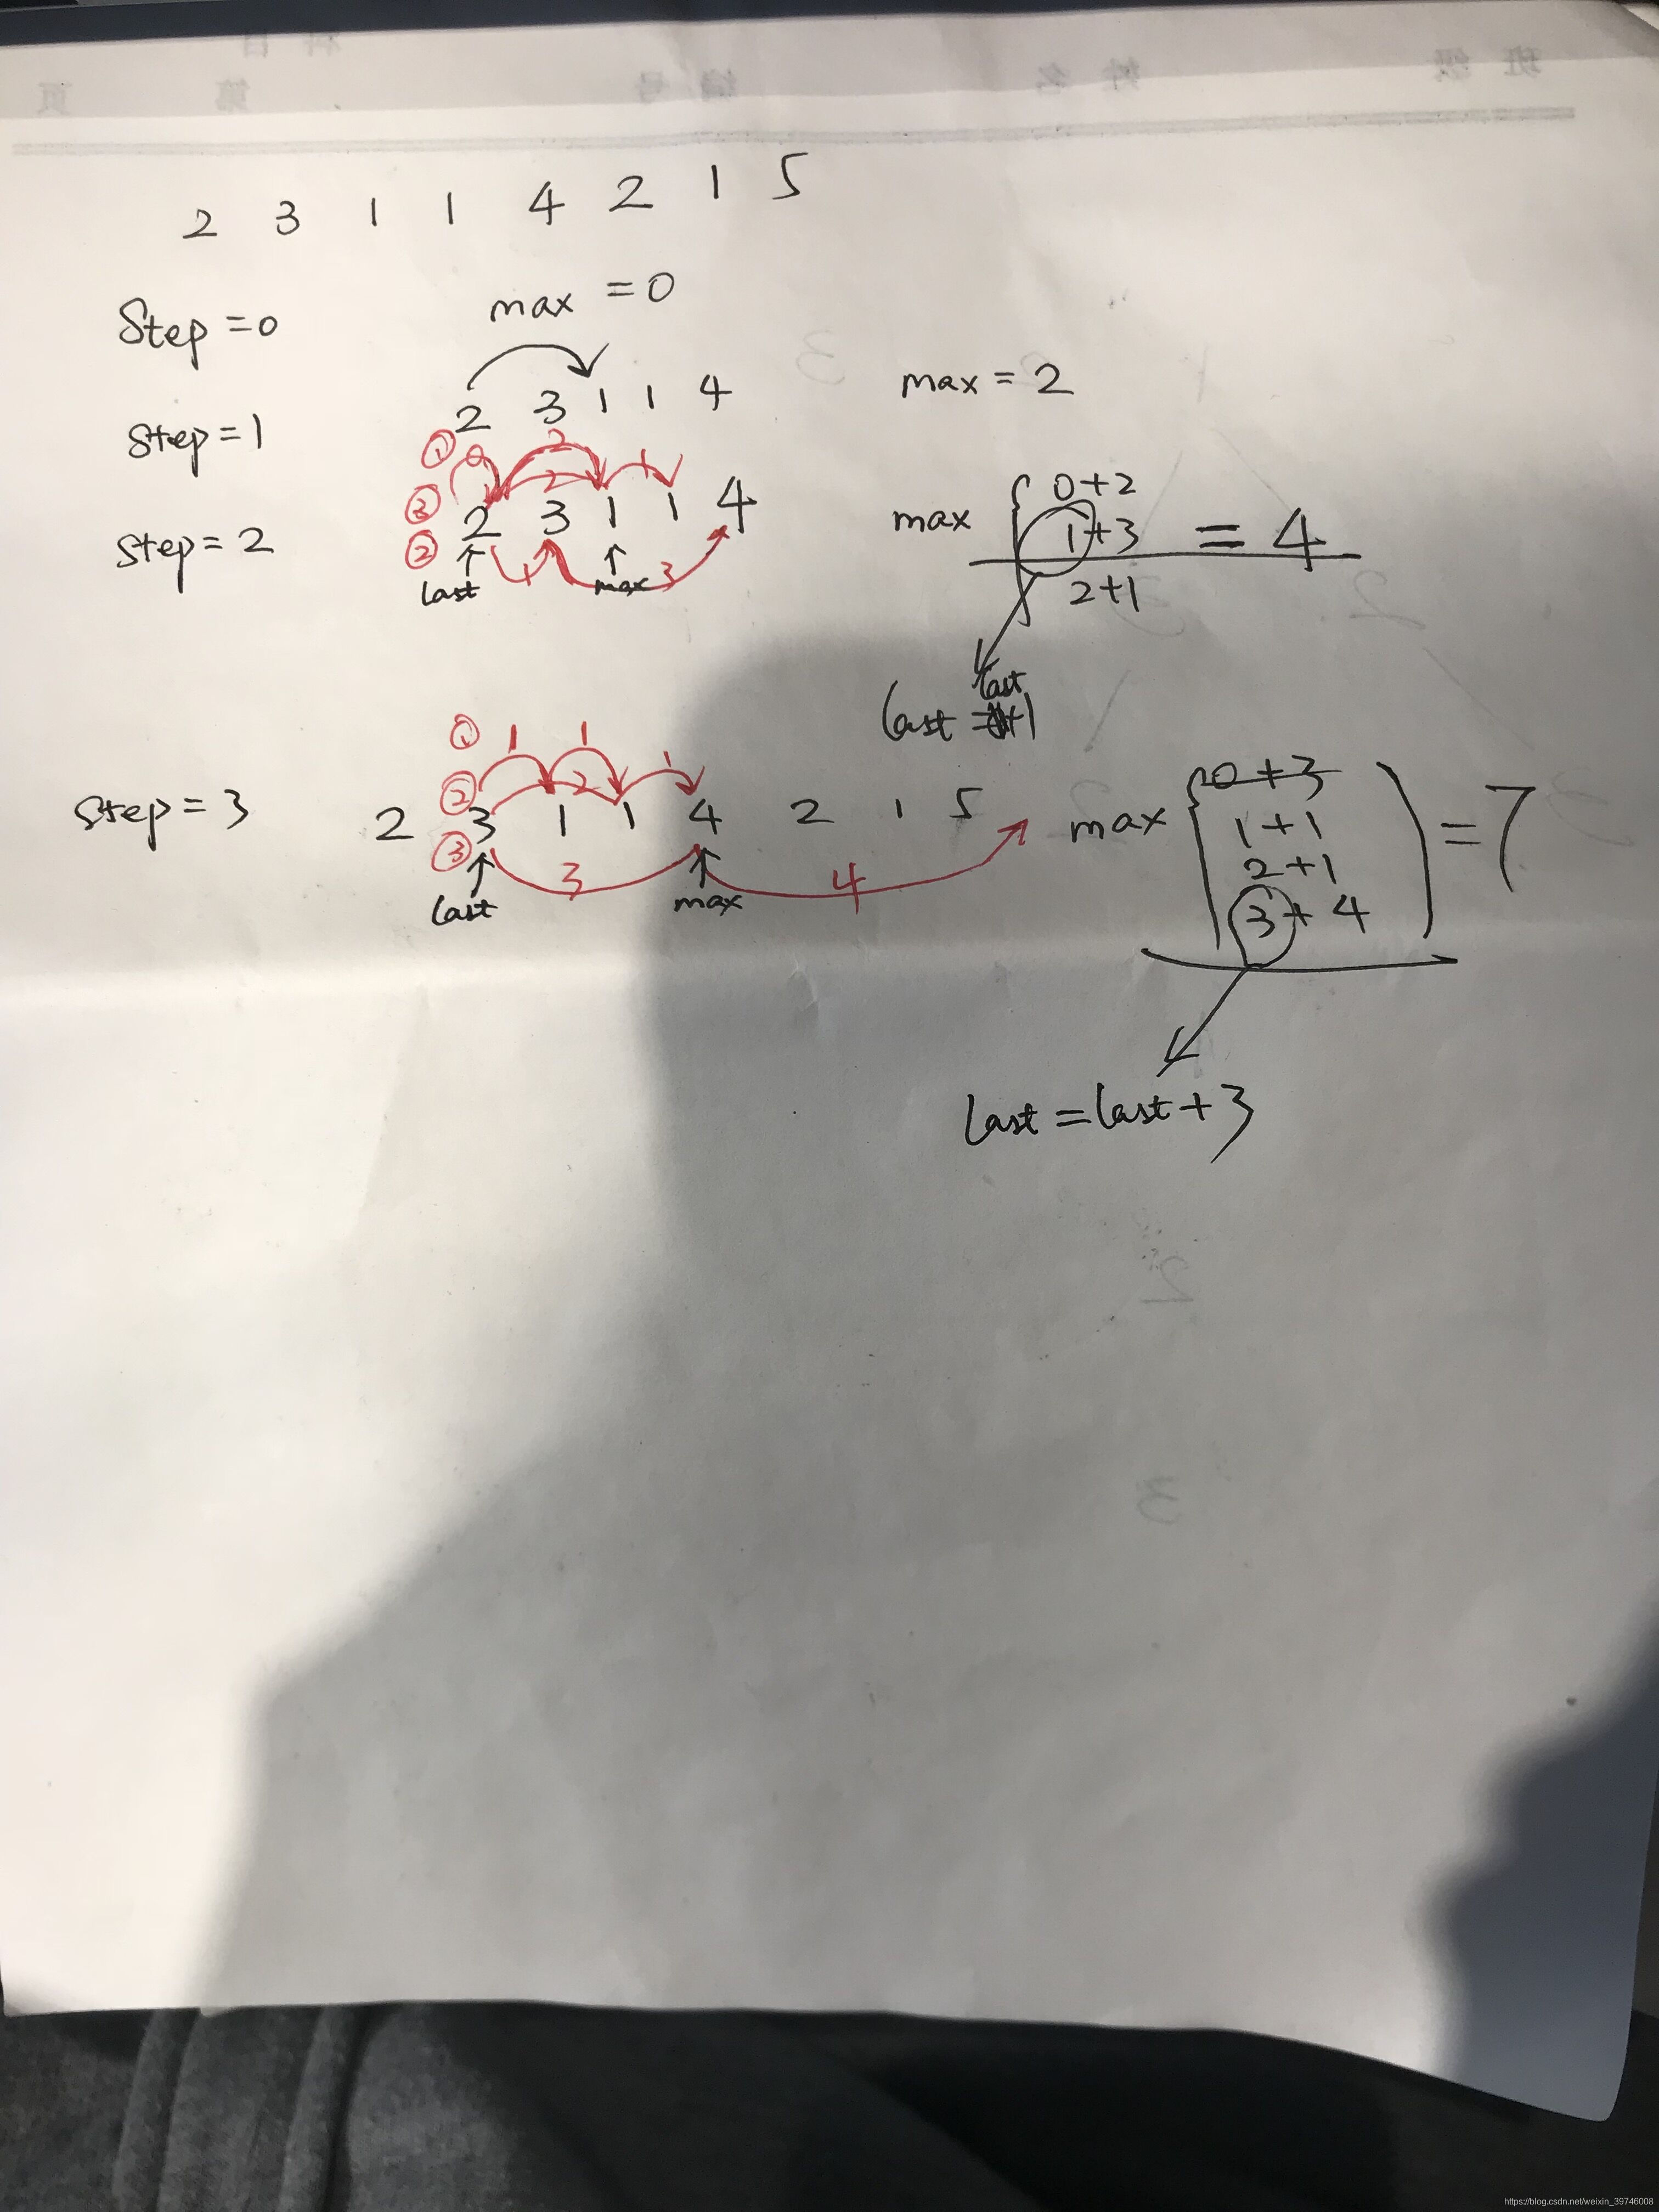 2 3 1 1 4 2 1 5
Step=0 max =0
Step=1 2 3 1 1 4 max=2
① 0 2
③ 2 1
Step=2 2 3 1 1 4
② 1 3
last max
max 0+2
1+3 = 4
2+1
last
① 1 1 1
② 2
Step=3 2 3 1 1 4 2 1 5
③ 3 4
last max
max 0+3
1+1 =7
2+1
3+4
last=last+3
https://blog.csdn.net/weixin_39746008